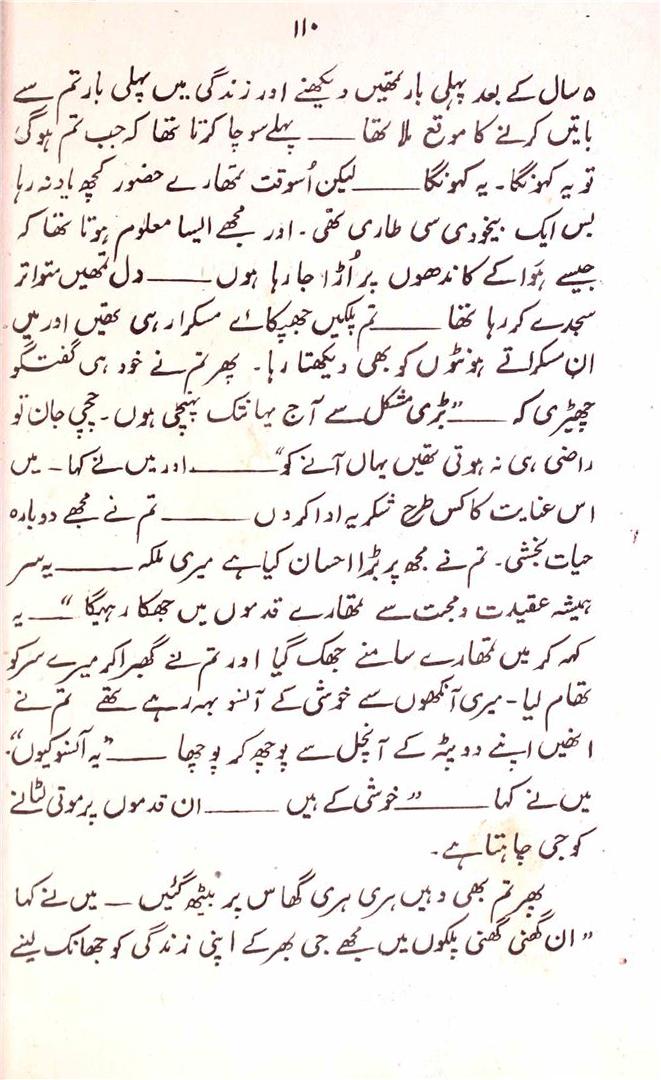 ۱۱۰
۵ سال کے بعد پہلی بار تمھیں دیکھنے اور زندگی میں پہلی بار تم سے
باتیں کرنے کا موقع ملا تھا ــــــ پہلے سوچا کرتا تھا کہ جب تم ہوگی
تو یہ کہونگا۔ یہ کہونگا ــــــ لیکن اُسوقت تمھارے حضور کچھ یاد نہ رہا
بس ایک بیخودی سی طاری تھی۔ اور مجھے ایسا معلوم ہوتا تھا کہ
جیسے ہَوا کے کاندھوں پر اُڑا جا رہا ہوں ــــــ دل تمھیں متواتر
سجدے کر رہا تھا ــــــ تم پلکیں جھپکائے مسکرا رہی تھیں اور میں
ان مسکراتے ہونٹوں کو بھی دیکھتا رہا۔ پھر تم نے خود ہی گفتگو
چھیڑی کہ ــــــ ”بڑی مشکل سے آج یہانتک پہنچی ہوں۔ چچی جان تو
راضی ہی نہ ہوتی تھیں یہاں آنے کو“ ــــــ اور میں نے کہا ۔ میں
اس عنایت کا کس طرح شکریہ ادا کروں ــــــ تم نے مجھے دوبارہ
حیات بخشی۔ تم نے مجھ پر بڑا احسان کیا ہے میری ملکہ ــــــ یہ سر
ہمیشہ عقیدت و محبت سے تمھارے قدموں میں جھکا رہیگا“ ــــ یہ
کہہ کر میں تمھارے سامنے جھک گیا اور تم نے گھبرا کر میرے سر کو
تھام لیا۔ میری آنکھوں سے خوشی کے آنسو بہہ رہے تھے تم نے
انھیں اپنے دوپٹہ کے آنچل سے پوچھ کر پوچھا ــــــ ”یہ آنسو کیوں“۔
میں نے کہا ــــــ ”خوشی کے ہیں ــــــ ان قدموں پر موتی لٹانے
کو جی چاہتا ہے۔
پھر تم بھی وہیں ہری ہری گھاس پر بیٹھ گئیں ــ میں نے کہا
”ان گھنی گھنی پلکوں میں مجھے جی بھر کے اپنی زندگی کو جھانک لینے